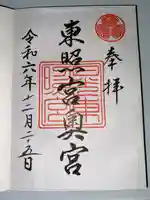 奉拝
東照宮奥宮
令和六年十二月二五日